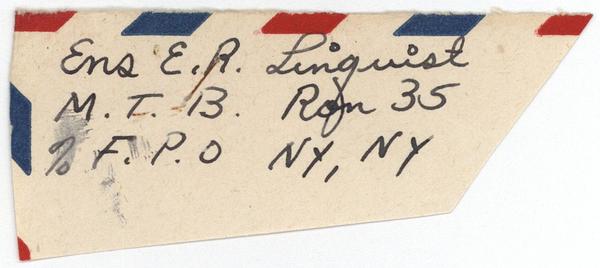 Ens E.R. Linquist
M.T.B. Ron 35
% F.P.O NY, NY